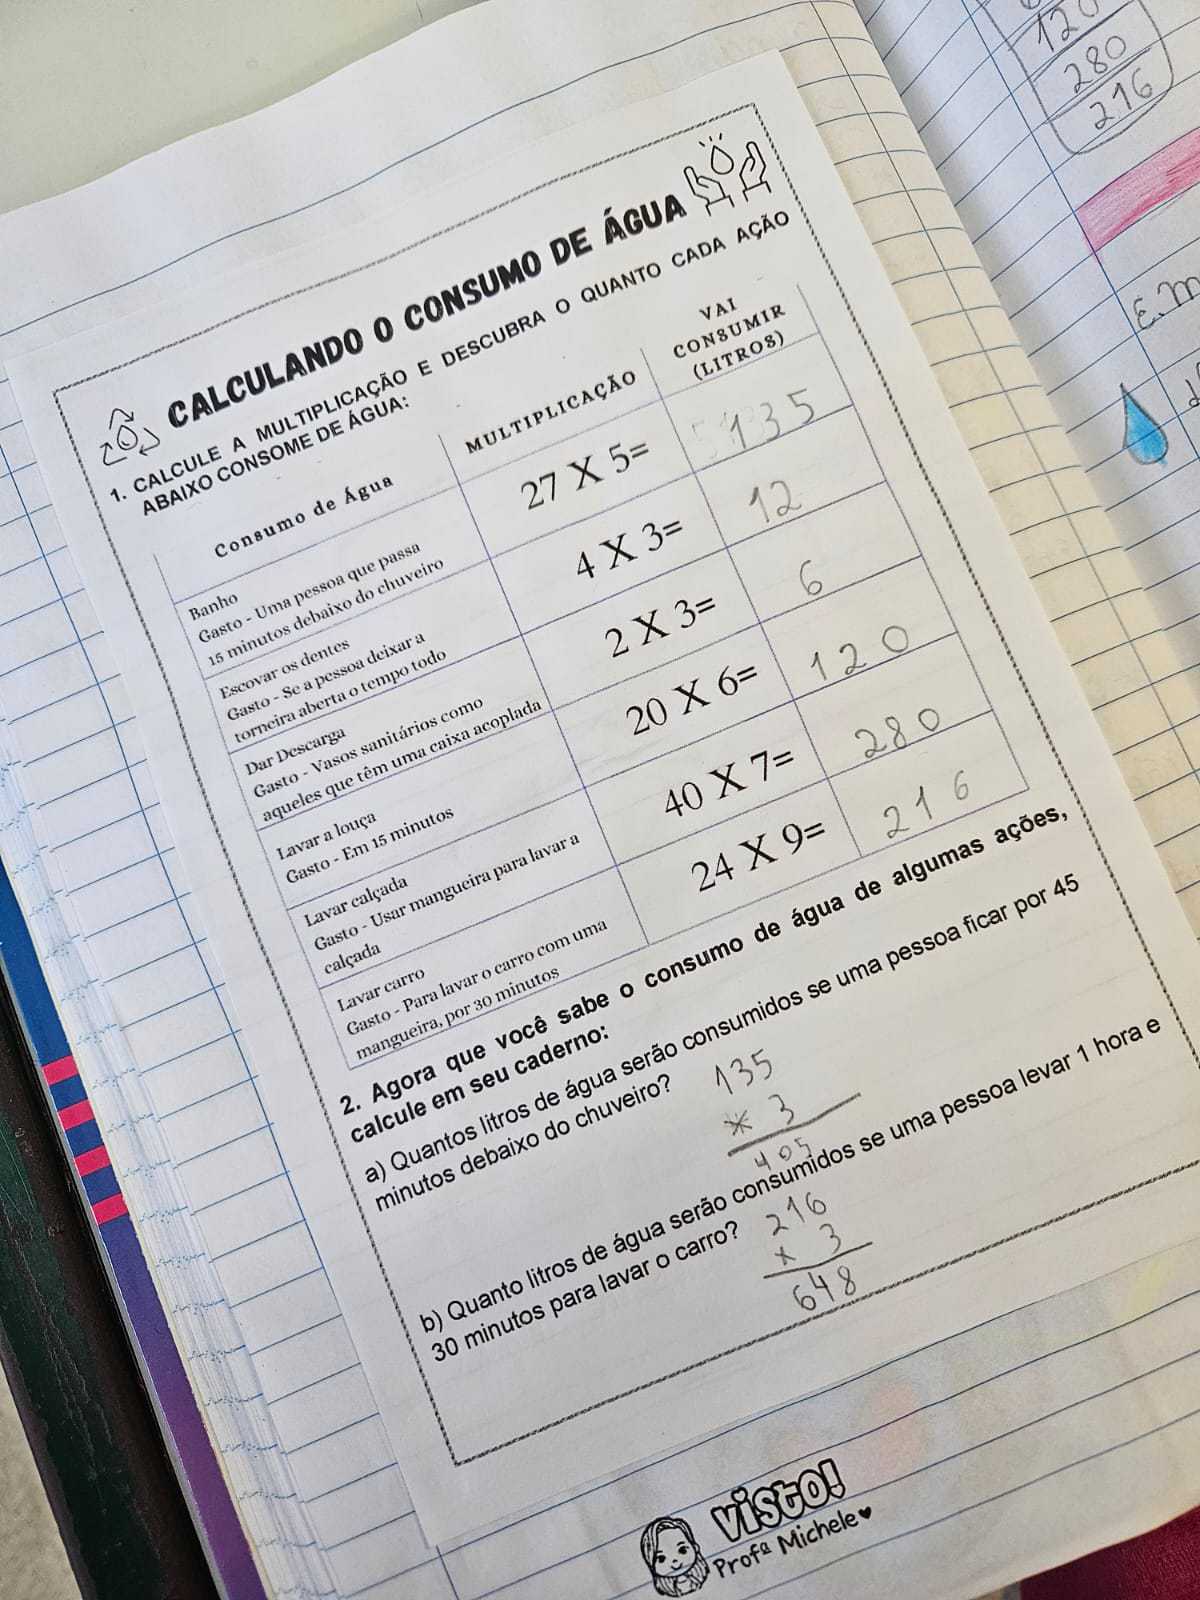 CALCULANDO O CONSUMO DE ÁGUA
1. CALCULE A MULTIPLICAÇÃO E DESCUBRA O QUANTO CADA AÇÃO
ABAIXO CONSOME DE ÁGUA:
Consumo de Água
MULTIPLICAÇÃO
VAI
CONSUMIR
(LITROS)
Banho
Gasto - Uma pessoa que passa
15 minutos debaixo do chuveiro
27 X 5=
135
Escovar os dentes
Gasto - Se a pessoa deixar a
torneira aberta o tempo todo
4 X 3=
12
Dar Descarga
Gasto - Vasos sanitários como
aqueles que têm uma caixa acoplada
2 X 3=
6
Lavar a louça
Gasto - Em 15 minutos
20 X 6=
120
Lavar calçada
Gasto - Usar mangueira para lavar a
calçada
40 X 7=
280
Lavar carro
Gasto - Para lavar o carro com uma
mangueira, por 30 minutos
24 X 9=
216
2. Agora que você sabe o consumo de água de algumas ações,
calcule em seu caderno:
a) Quantos litros de água serão consumidos se uma pessoa ficar por 45
minutos debaixo do chuveiro?
135
x 3
405
b) Quanto litros de água serão consumidos se uma pessoa levar 1 hora e
30 minutos para lavar o carro?
216
x 3
648
visto!
Profª Michele
120
280
216
E.M